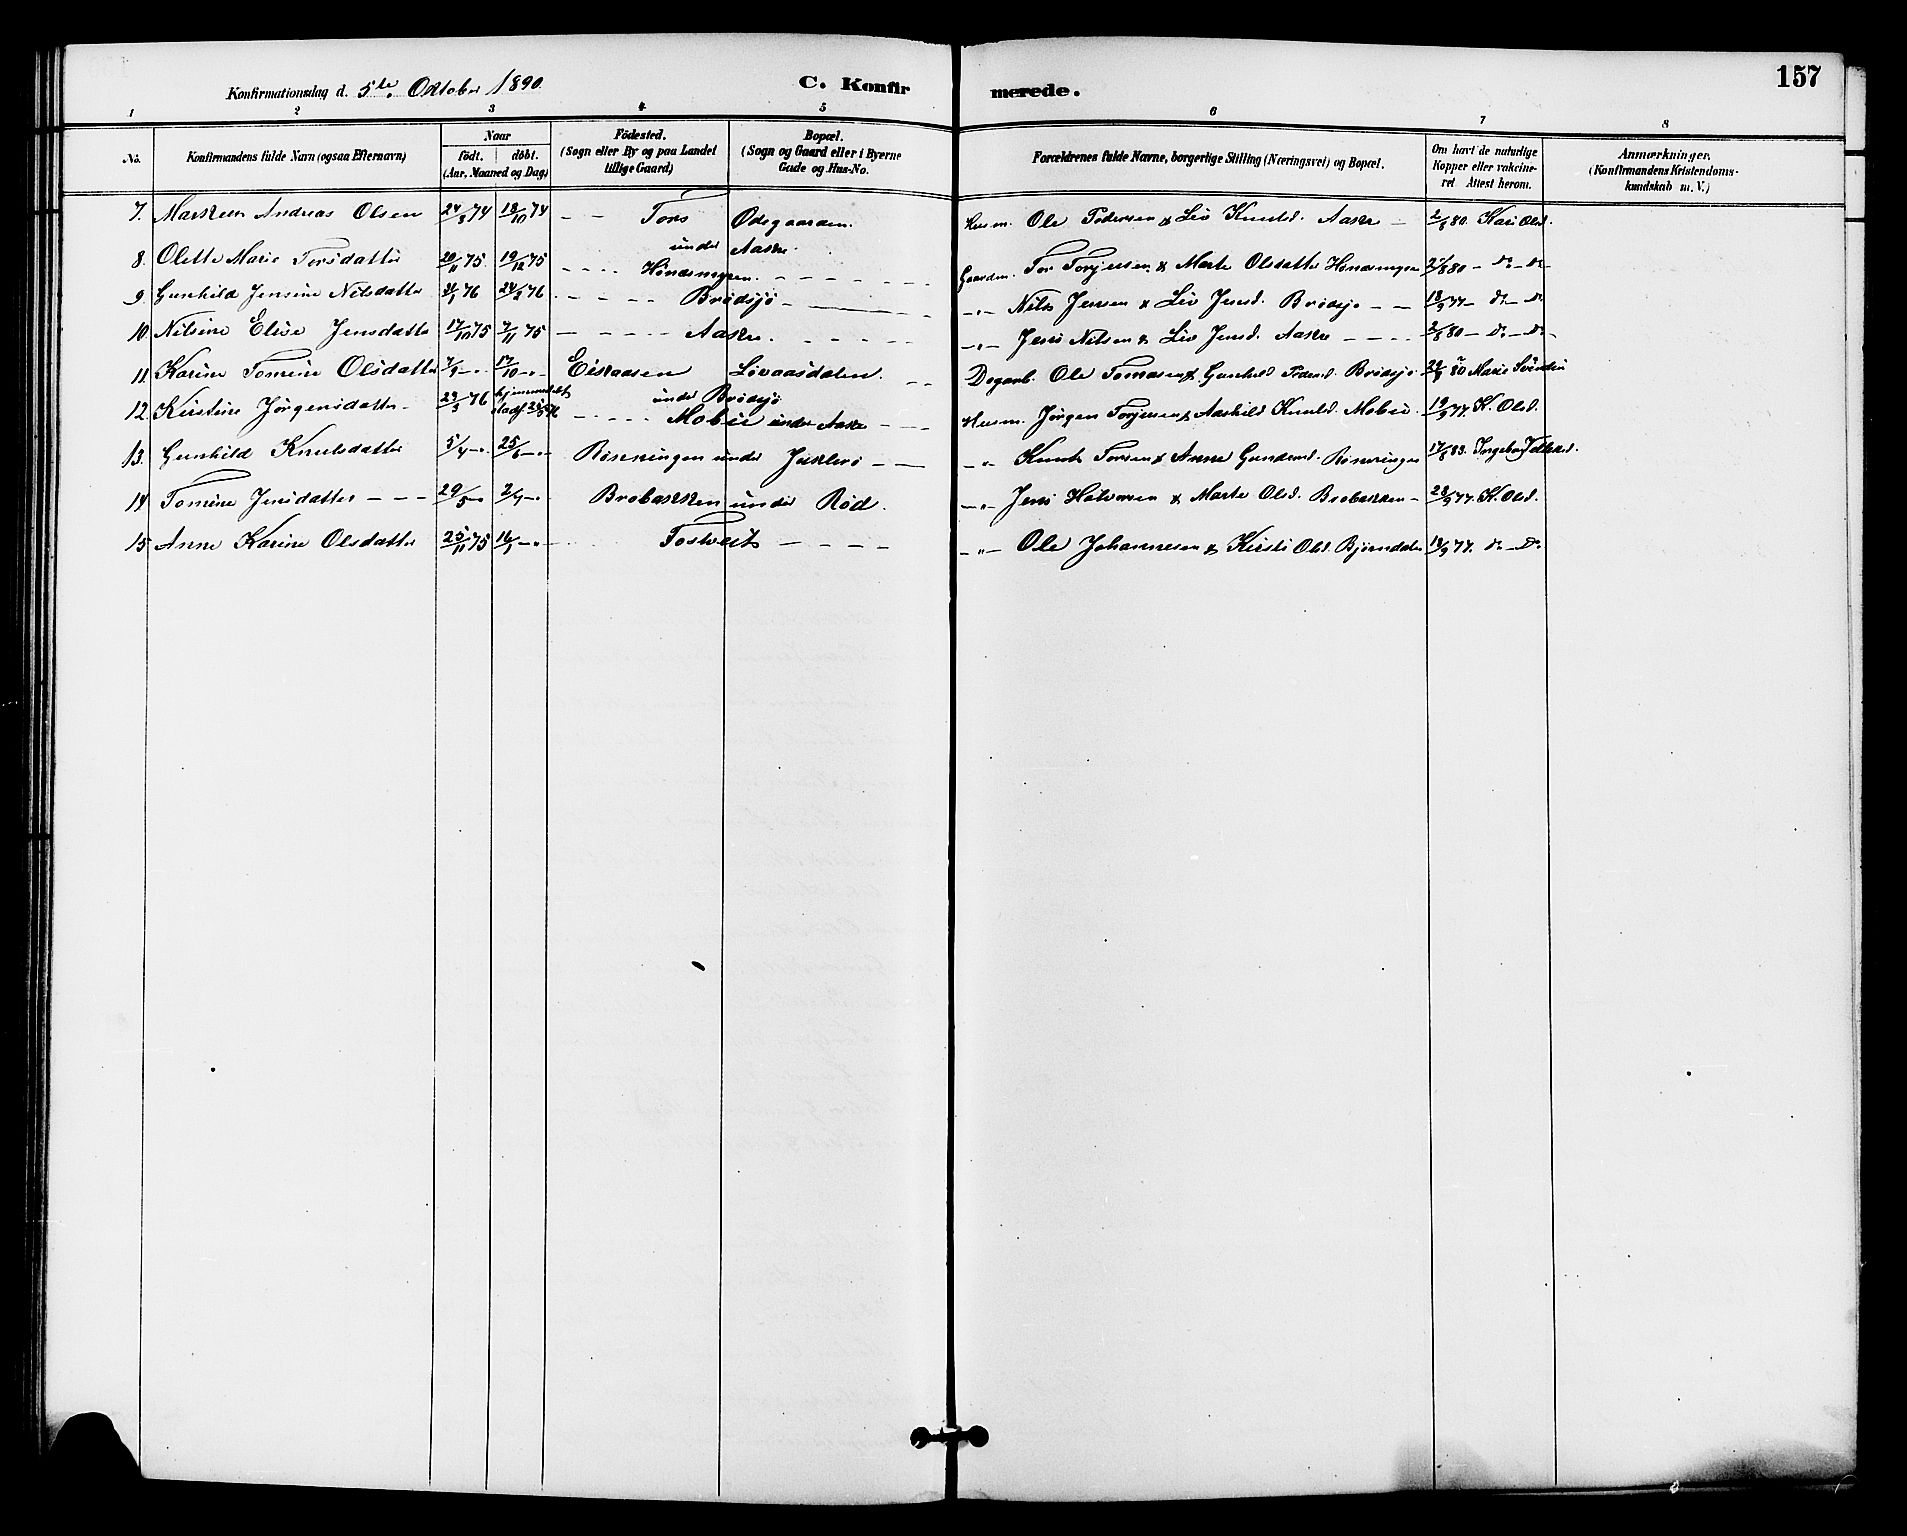 157
Konfirmationsdag d. 5te Oktober 1890.
C. Konfirmerede.
1 2 3 4 5 6 7 8
No. Konfirmandens fulde Navn (ogsaa Efternavn) Naar født. døbt. (Aar, Maaned og Dag) Fødested. (Sogn eller By og paa Landet tillige Gaard) Bopæl. (Sogn og Gaard eller i Byerne Gade og Hus-No. Forældrenes fulde Navne, borgerlige Stilling (Næringsvei) og Bopæl. Om havt de naturlige Kopper eller vakcineret. Attest herom. Anmærkninger. (Konfirmandens Kristendomskundskab m. V.)
7. Andreas Olsen 24/8 74 18/10 74 - - Tors Ødegaarden under Aaske. Husm. Ole Pedersen & Liv Knutsd. Aaske - 2/8 80. Kari Olsd.
8. Olette Marie Torsdatter 20/11 75. 19/12 75 - - - - Hønsemyren. - - - - Gaardm. Tor Torjussen & Marte Olsdatter Hønsemyren 27/8 80 - do - do -
9. Gunhild Jensine Nilsdatter 21/1 76 24/2 76 - - - - Brødsjø - - - - -"- Nils Jensen & Liv Jensd. Brødsjø - - 18/9 77 - do - do
10. Nilsine Elise Jensdatter 17/10 75 7/11 75 - - - - Aaske. - - - - -"- Jens Nilsen & Liv Jensd. Aaske - - - - 2/8 80 - do - do -
11. Karine Tomine Olsdatter 7/9 -"- 17/10 -"- Eikaasen Løvaasdalen. under Brødsjø - - Dagarb. Ole Tomasen & Gunhild Pedersd. Brødsjø 80 Marie
12. Kirstine Jørgensdatter - 23/3 76 hjemmedøbt stadf. 25/5 76 - - - - Mobu under Aaske - - - Husm. Jørgen Torjussen & Aashild Knutsd. Mobu. 19/9 77. K. Olsd.
13. Gunhild Knutsdatter 5/4 -"- 25/6 -"- Rønningen under - - -"- Knut Torsen & Anne Gundersd. Rønningen 17/8 83. Ingeborg
14 Tomine Jensdatter - - - 29/5 -"- 2/7 -"- Brobakken under Rød. -"- Jens Halvorsen & Marte Olsd. Brobakken - 28/9 77. K. Olsd.
15. Anne Karine Olsdatter 25/11 75 16/1 -"- - - - Tostveit - - - - -"- Ole Johannesen & Kirsti Olsd. Bjørndalen 18/9 77. do - do